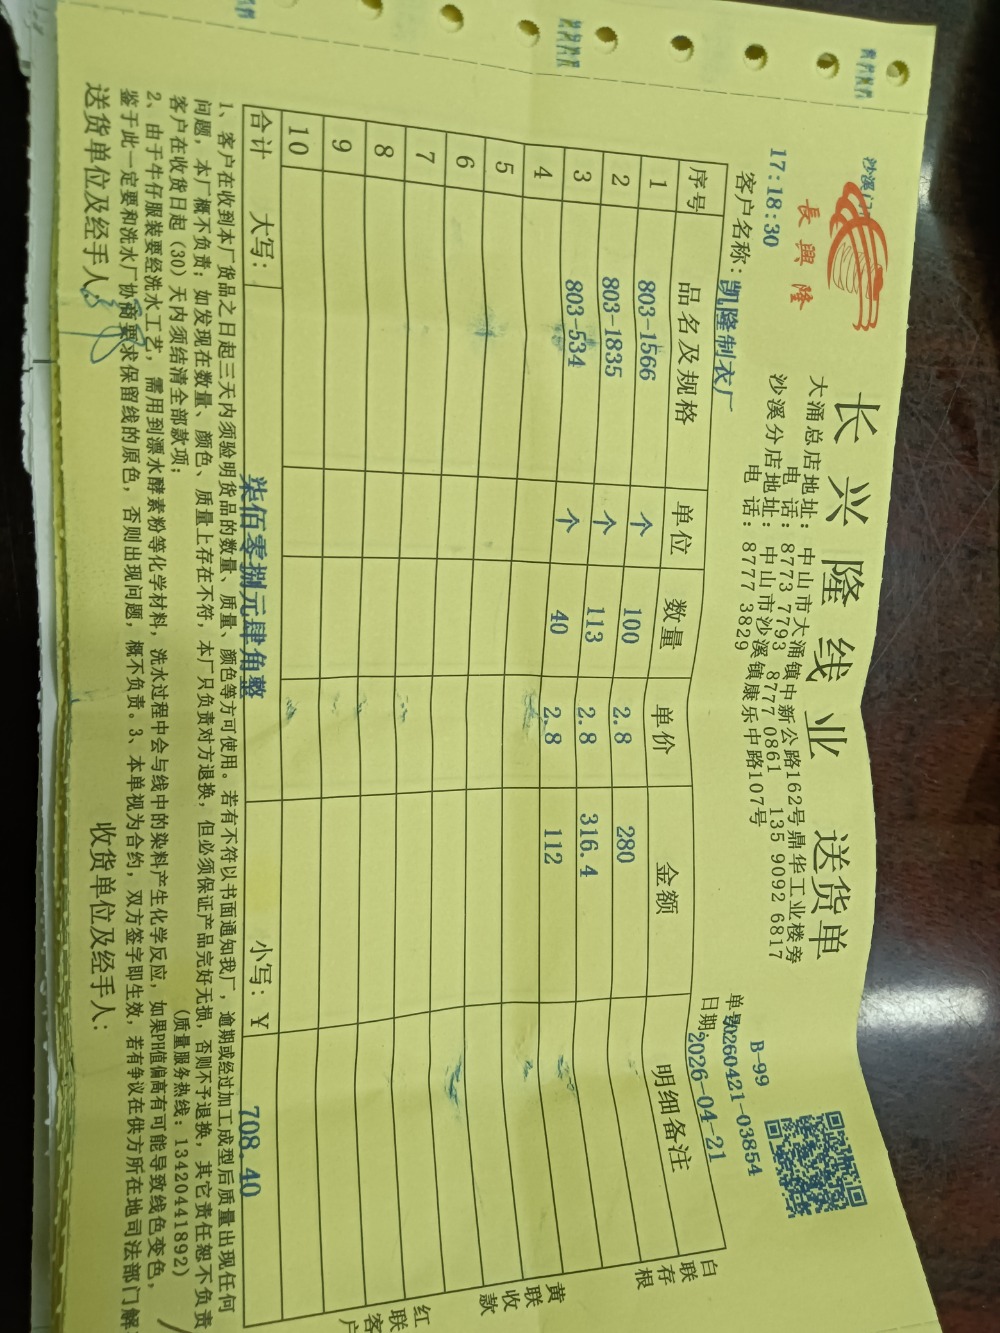 長興隆
长兴隆线业 送货单
大涌总店地址：中山市大涌镇中新公路162号鼎华工业楼旁
电 话：8773 7793 8777 0861 135 9092 6817
沙溪分店地址：中山市沙溪镇康乐中路107号
电 话：8777 3829
17:18:30
B-99
单号:20260421-03854
客户名称：凯隆制衣厂
日期:2026-04-21
序号 品名及规格 单位 数量 单价 金额 明细备注
1 803-1566 个 100 2.8 280
2 803-1835 个 113 2.8 316.4
3 803-534 个 40 2.8 112
4
5
6
7
8
9
10
合计 大写： 柒佰零捌元肆角整 小写：￥ 708.40
白联存根
黄联收款
红联客户
1、客户在收到本厂货品之日起三天内须验明货品的数量、质量、颜色等方可使用。若有不符以书面通知我厂，逾期或经过加工成型后质量出现任何
问题，本厂概不负责；如发现在数量、颜色、质量上存在不符，本厂只负责对方退换，但必须保证产品完好无损，否则不予退换，其它责任恕不负责
客户在收货日起（30）天内须结清全部款项；
（质量服务热线：13420441892）
2、由于牛仔服装要经洗水工艺，需用到漂水酵素粉等化学材料，洗水过程中会与线中的染料产生化学反应，如果PH值偏高有可能导致线色变色，
鉴于此一定要和洗水厂协商要求保留线的原色，否则出现问题，概不负责。3、本单视为合约，双方签字即生效，若有争议在供方所在地司法部门解
送货单位及经手人：
收货单位及经手人：